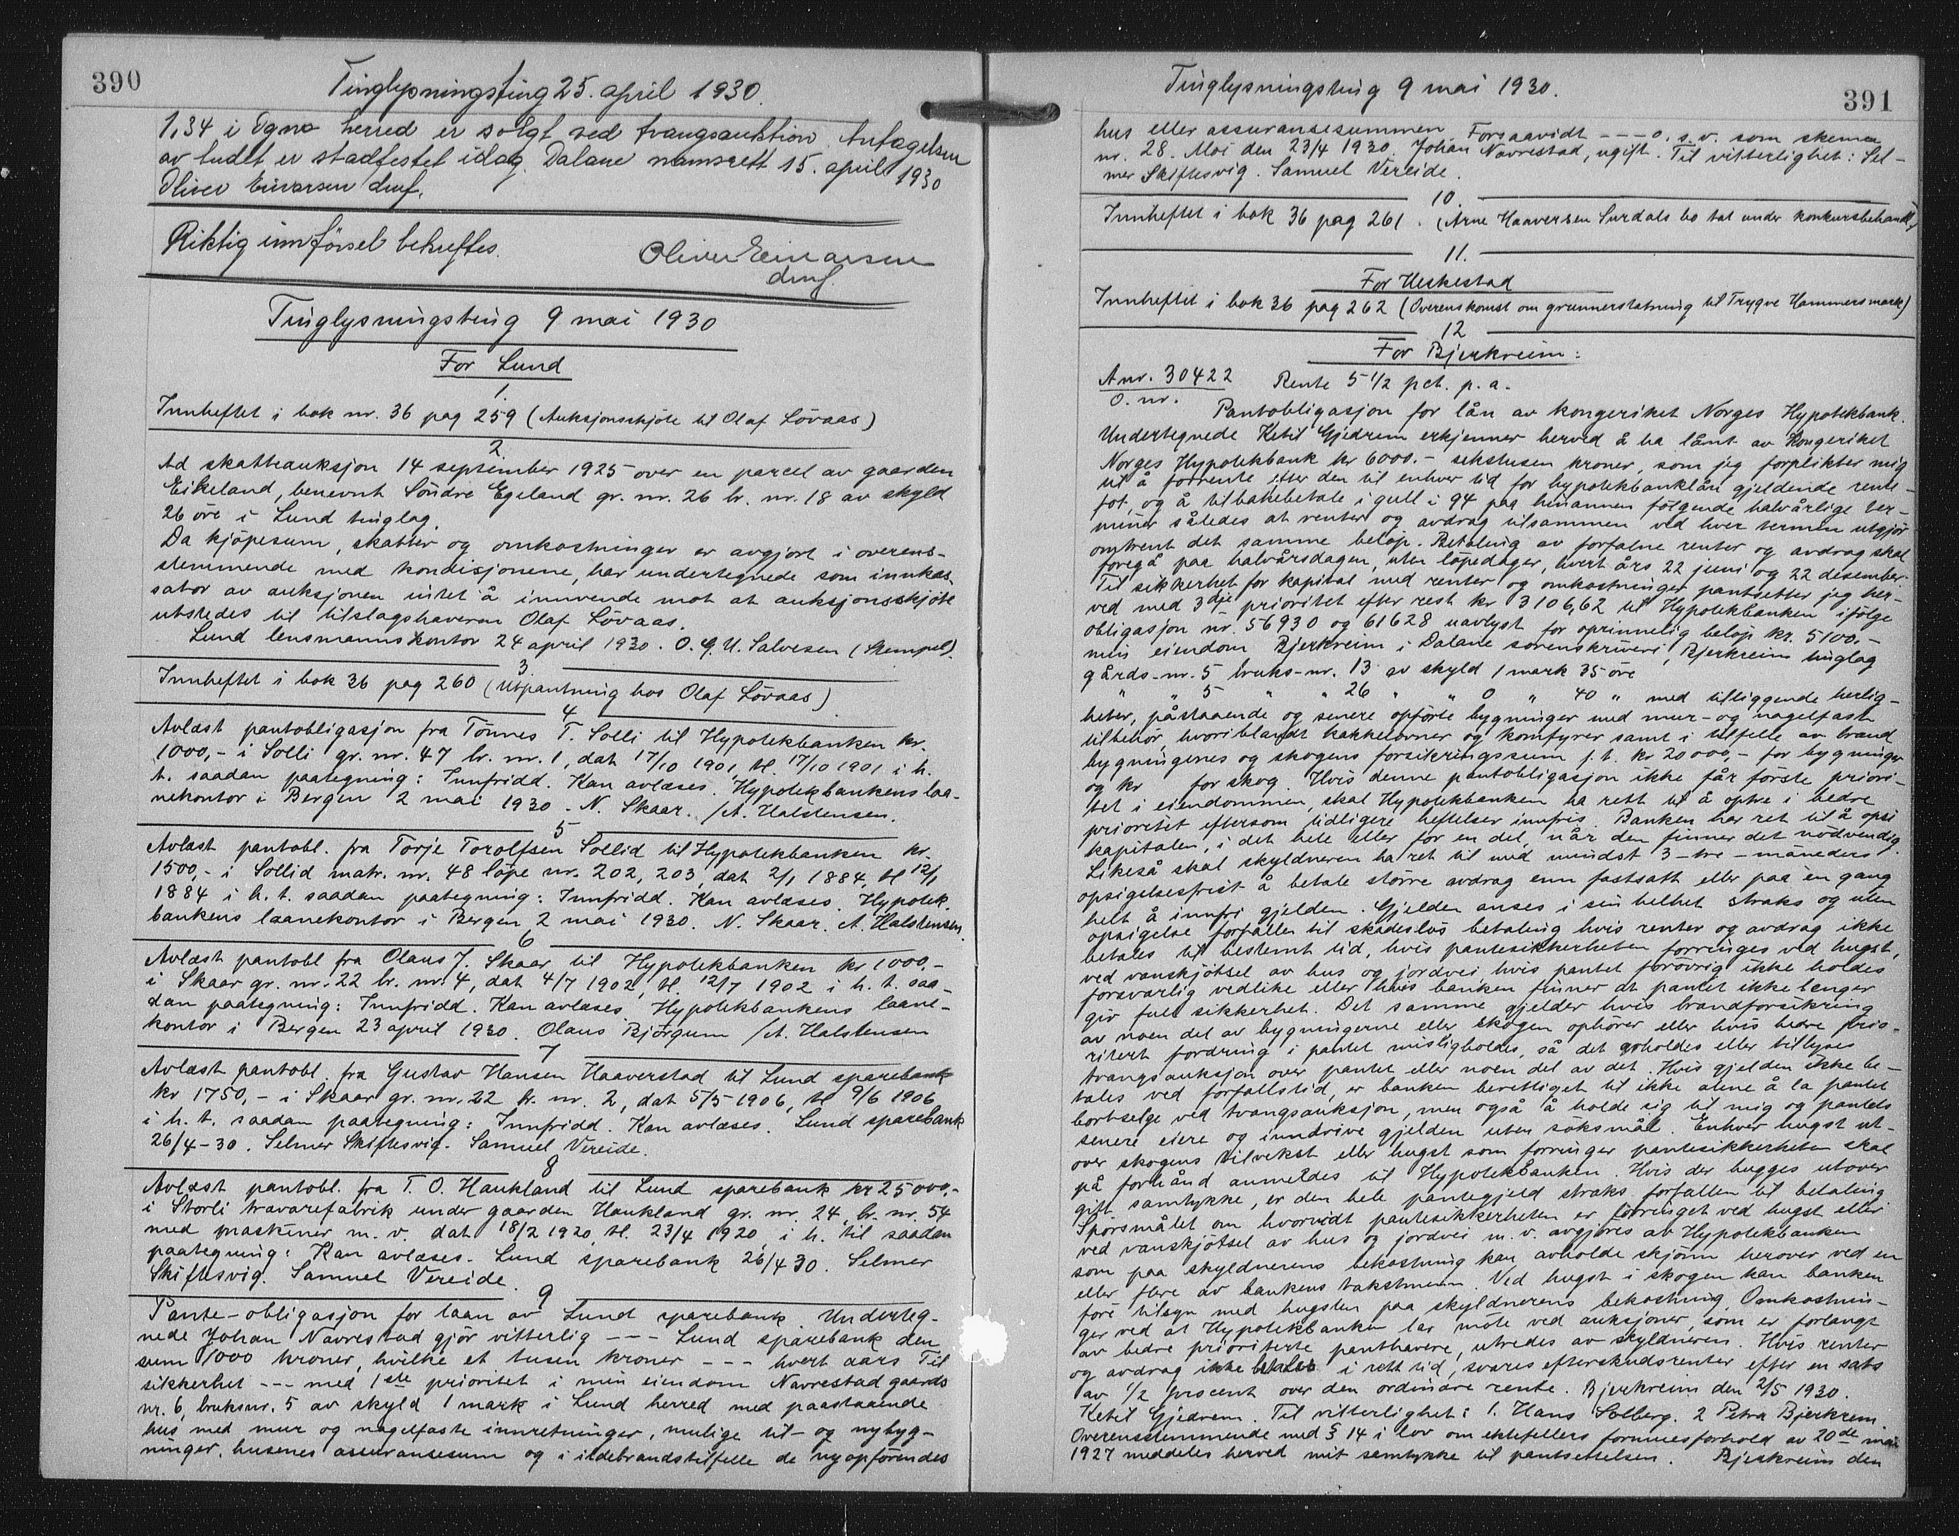 390
Tinglysningsting 25. april 1930.
1,34 i Ogna herred er solgt ved tvangsauktion. Antagelsen
av budet er stadfestet idag. Dalane namsrett 15. april 1930
Oliver Einarsen dmf.
Riktig innförsel bekreftes.
Oliver Einarsen
dmf.
Tinglysningsting 9 mai 1930
For Lund
1.
Innheftet i bok nr. 36 pag 259 (Auksjonsskjöte til Olaf Lövaas)
2
Ad skatteauksjon 14 september 1925 over en parcel av gaarden
Eikeland, benevnt Söndre Egeland gr. nr. 26 br. nr. 18 av skyld
26 öre i Lund tinglag.
Da kjöpesum, skatter og omkostninger er avgjort i overens-
stemmende med kondisjonene, har undertegnede som innkas-
sator av auksjonen intet å innvende mot at auksjonsskjöte
utstedes til tilslagshaveren Olaf Lövaas.
Lund lensmannskontor 24 april 1930. O. G. U. Salvesen (Stempel).
3
Innheftet i bok 36 pag 260 (Utpantning hos Olaf Lövaas)
4
Avlæst pantobligasjon fra Tönnes T. Solli til Hypotekbanken kr.
1000,- i Solli gr. nr. 47 br. nr. 1, dat 17/10 1901, tl. 17/10 1901 i h.
t. saadan paategning: Innfridd. Kan avlæses. Hypotekbankens laa-
nekontor i Bergen 2 mai 1930. N. Skaar. /A. Halstensen.
5
Avlæst pantobl. fra Torje Torolfsen Sollid til Hypotekbanken kr.
1500,- i Sollid matr. nr. 48 löpe nr. 202, 203 dat 2/1 1884, tl 12/1
1884 i h. t. saadan paategning: Innfridd. Kan avlæses. Hypotek-
bankens laanekontor i Bergen 2 mai 1930. N. Skaar. A. Halstensen.
6
Avlæst pantobl fra Olaus J. Skaar til Hypotekbanken kr 1000,-
i Skaar gr. nr. 22 br. nr. 4, dat 4/7 1902, tl. 12/7 1902 i h. t. saa-
dan paategning: Innfridd. Kan avlæses. Hypotekbankens laane-
kontor i Bergen 23 april 1930. Olaus Bjørgum /A. Halstensen
7
Avlæst pantobl. fra Gustav Hansen Haaverstad til Lund sparebank
kr 1750,- i Skaar gr. nr. 22 br. nr. 2, dat 5/5 1906, tl 9/6 1906
i h. t. saadan paategning: Innfridd. Kan avlæses. Lund sparebank
26/4-30. Selmer Skiftesvig. Samuel Vereide.
8
Avlæst pantobl. fra T. O. Haukland til Lund sparebank kr 25000,-
i Storli travarefabrik under gaarden Haukland gr. nr. 24, br. nr. 54
med maskiner m. v. dat 18/2 1920, tl. 23/4 1920 i h. til saadan
paategning: Kan avlæses. Lund sparebank 26/4 30. Selmer
Skiftesvig. Samuel Vereide.
9
Pante-obligasjon for laan av Lund sparebank. Underteg-
nede Johan Navrestad gjör vitterlig --- Lund sparebank den
sum 1000 kroner, hvilke et tusen kroner --- hvert aars Til
sikkerhet --- med 1ste prioritet i min eiendom Navrestad gaards
nr. 6, bruksnr. 5 av skyld 1 mark i Lund herred med paastaaende
hus med mur og nagelfaste innretninger, mulige til- og nybyg-
ninger, husenes assuransesum og i ildebrandstilfelle de nyopförendes
391
Tinglysningsting 9 mai 1930.
hus eller assuransesummen. Forsaavidt --- o. s. v. som skema
nr. 28. Moi den 23/4 1930. Johan Navrestad, ugift. Til vitterlighet: Sel-
mer Skiftesvig. Samuel Vereide.
10.
Innheftet i bok 36 pag 261. (Arne Haaversen Surdals bo tat under konkursbehandl.)
11.
For Heskestad
Innheftet i bok 36 pag 262 (Overenskomst om grunnerstatning til Trygve Hammersmark)
12
For Bjerkreim:
Anr. 30422 Rente 5 1/2 pct. p. a.
O. nr.
Pantobligasjon for lån av kongeriket Norges Hypotekbank.
Undertegnede Ketil Gjedrem erkjenner herved å ha lånt av Kongeriket
Norges Hypotekbank kr 6000.- sekstusen kroner, som jeg forplikter mig
til å forrente efter den til enhver tid for hypotekbanklån gjeldende rente-
fot, og å tilbakebetale i gull i 94 paa hinannen fölgende halvårlige ter-
miner således at renter og avdrag tilsammen ved hver termin utgjör
omtrent det samme belöp. Betaling av forfalne renter og avdrag skal
foregå paa halvårsdagen, uten löpedager, hvert års 22 juni og 22 desember.
Til sikkerhet for kapital med renter og omkostninger pantsetter jeg her-
ved med 3dje prioritet efter rest kr 3106,62 til Hypotekbanken ifölge
obligasjon nr. 56930 og 61628 uavlyst for oprinnelig belöp kr. 5100.-
min eiendom Bjerkreim i Dalane sorenskriveri, Bjerkreim tinglag
gårds-nr. 5 bruks-nr. 13 av skyld 1 mark 35 öre
" " 5 " " 26 " " 0 " 40 " med tilliggende herlig-
heter, påstaaende og senere opförte bygninger med mur- og nagelfast
tilbehör, hvoriblandt kakkelovner og komfyrer samt i tilfelle av brand
bygningenes og skogens forsikringssum f. t. kr 20000,- for bygninger
og kr for skog. Hvis denne pantobligasjon ikke får förste priori-
tet i eiendommen, skal Hypotekbanken ha rett til å optre i bedre
prioritet eftersom tidligere heftelser innfris. Banken har ret til å opsi
kapitalen, i det hele eller for en del, når den finner det nödvendig.
Likeså skal skyldneren ha ret til med mindst 3-tre-måneders
opsigelsesfrist å betale större avdrag enn fastsatt eller paa en gang
helt å innfri gjelden. Gjelden anses i sin helhet straks og uten
opsigelse forfallen til skadeslös betaling hvis renter og avdrag ikke
betales til bestemt tid, hvis pantesikkerheten forringes ved hugst,
ved vanskjötsel av hus og jordvei hvis pantet forövrig ikke holdes
forsvarlig vedlike eller hvis banken finner at pantet ikke lenger
gir full sikkerhet. Det samme gjelder hvis brandforsikring
av noen del av bygningerne eller skogen ophörer eller hvis bedre prio-
ritert fordring i pantet misligholdes, så det avholdes eller tillyses
tvangsauksjon over pantet eller noen del av det. Hvis gjelden ikke be-
tales ved forfallstid, er banken berettiget til ikke alene å la pantet
bortselge ved tvangsauksjon, men også å holde sig til mig og pantets
senere eiere og inndrive gjelden uten söksmål. Enhver hugst ut-
over skogens tilvekst eller hugst som forringer pantesikkerheten skal
på forhånd anmeldes til Hypotekbanken. Hvis der hugges utover
gitt samtykke, er den hele pantegjeld straks forfallen til betaling
Spörsmålet om hvorvidt pantesikkerheten er forringet ved hugst eller
ved vanskjötsel av hus og jordvei m. v. avgjöres av Hypotekbanken
som paa skyldnerens bekostning kan avholde skjönn herover ved en
eller flere av bankens takstmenn. Ved hugst i skogen kan banken
före tilsyn med hugsten paa skyldnerens bekostning. Omkostnin-
ger ved at Hypotekbanken lar möte ved auksjoner, som er forlangt
av bedre prioriterte panthavere, utredes av skyldneren. Hvis renter
og avdrag ikke betales i rett tid, svares efterskudsrenter efter en sats
av 1/2 procent over den ordinäre rente. Bjerkreim den 2/5 1930.
Ketil Gjedrem. Til vitterlighet: 1. Hans Solberg. 2 Petra Bjerkrem.
Overensstemmende med § 14 i lov om ektefellers formuesforhold av 20de mai
1927 meddeles herved mit samtykke til pantsettelsen. Bjerkreim den